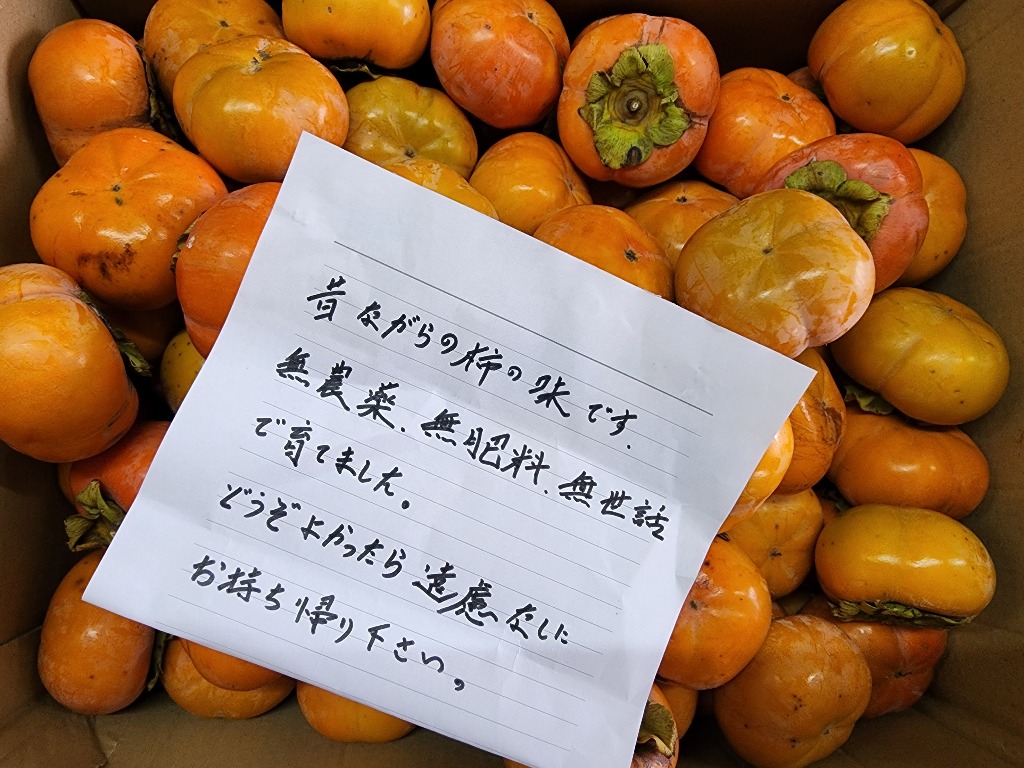 昔ながらの柿の味です.
無農薬.無肥料.無世話
で育てました。
どうぞよかったら遠慮なしに
お持ち帰り下さい。